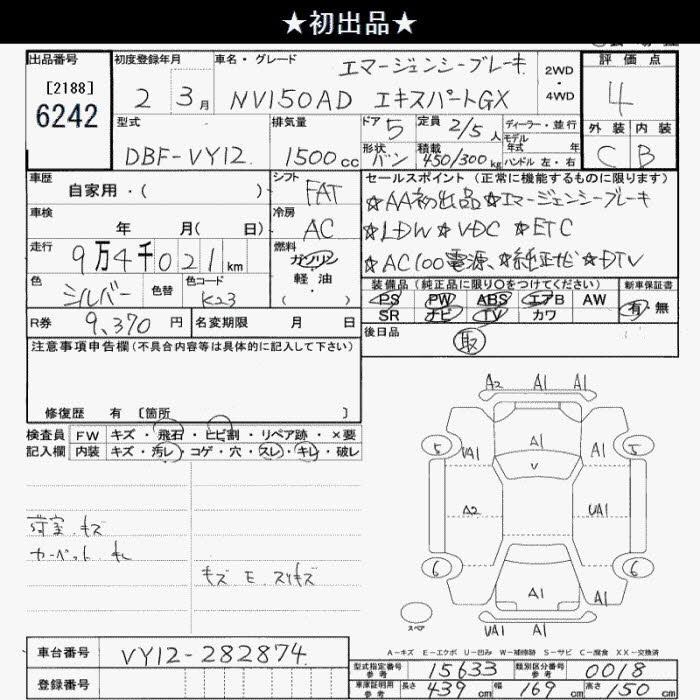 ★初出品★
出品番号
[2188]
6242
初度登録年月
2 3月
車名・グレード
エマージェンシーブレーキ
NV150AD エキスパートGX
2WD
・
4WD
評価点
4
外装 内装
C B
型式
DBF-VY12
排気量
1500cc
ドア
5
定員
2/5人
ディーラー・並行
モデル年式 年
形状
バン
積載
450/300kg
ハンドル 左・右
車歴
自家用・( )
シフト
FAT
車検
年 月( 日)
冷房
AC
走行
9万4千021km
燃料
ガソリン
軽油
( )
色
シルバー
色替
色コード
K23
R券
9,370円
名変期限 月 日
セールスポイント(正常に機能するものに限ります)
☆AA初出品 ☆エマージェンシーブレーキ
☆LDW ☆VDC ☆ETC
☆AC100電源、☆純正ナビ ☆DTV
装備品(純正品に限り○をつけてください)
新車保証書
PS PW ABS エアB AW
SR ナビ TV カワ
有・無
後日品
取
注意事項申告欄(不具合内容等は具体的に記入して下さい)
修復歴 有 [箇所 ]
検査員
記入欄
FW キズ・飛石・ヒビ割・リペア跡・×要
内装 キズ・汚レ・コゲ・穴・スレ・キレ・破レ
荷室 キズ
カーペット キレ
キズ E スリキズ
A2 A1 A1
5 VA1 A1 A1 5
V
A2 UA1
6 A1 A1 6
スペア
VA1 A1
A-キズ E-エクボ U-凹み W-補修跡 S-サビ C-腐食 XX-交換済
車台番号
VY12-282874
登録番号
型式指定番号
参考
15633
類別区分番号
参考
0018
車庫証明用
参考
長さ 439cm
幅 169cm
高さ 150cm